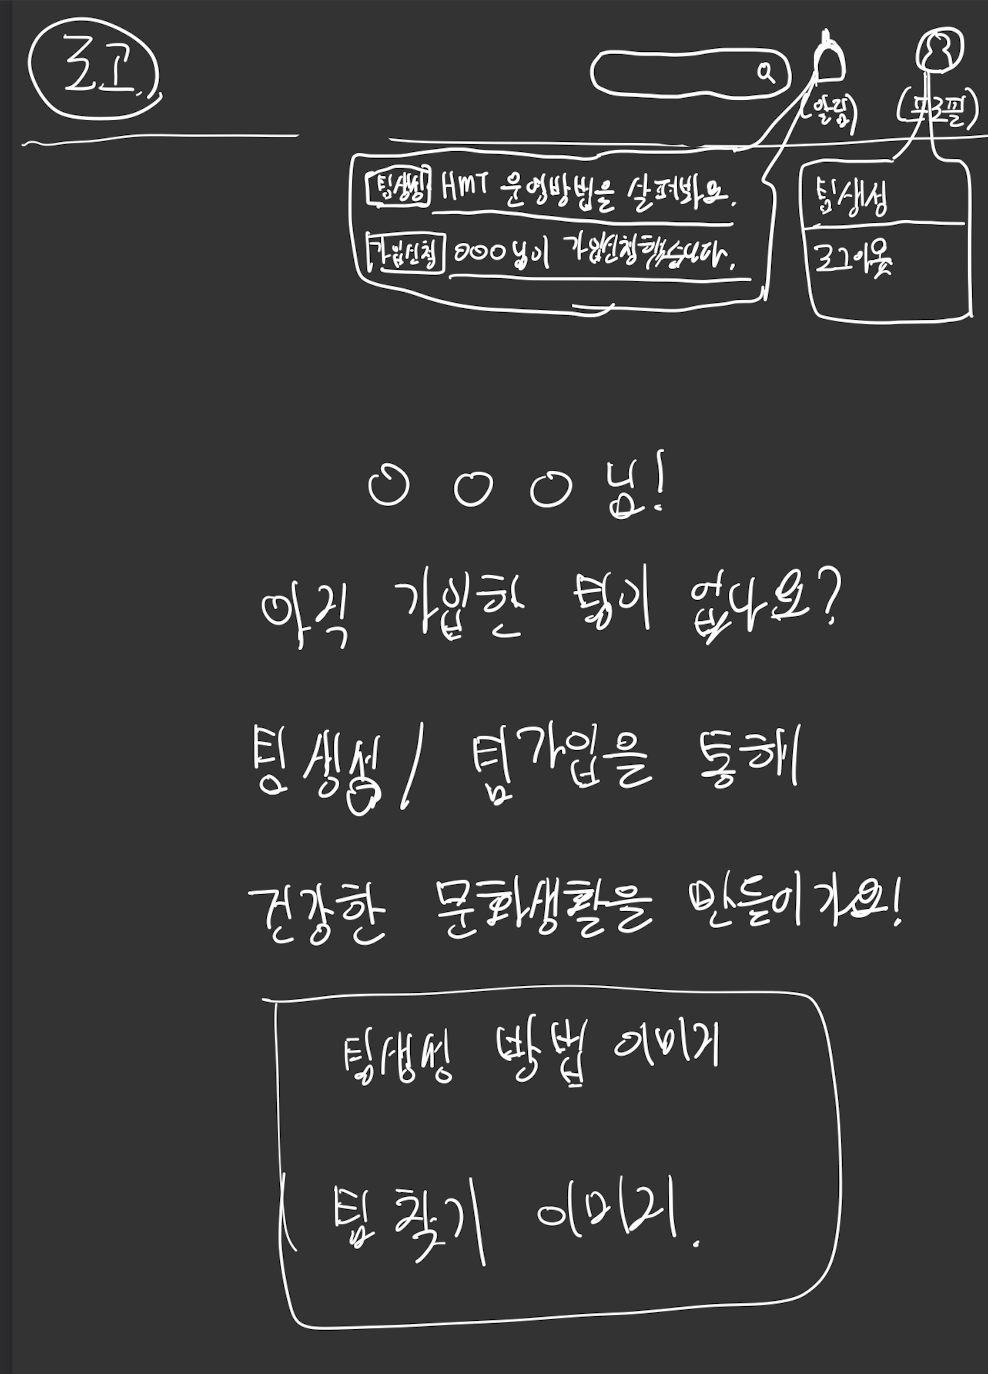 로고
(알림)
(프로필)
팀생성 HMT 운영방법을 살펴봐요.
가입신청 ○○○님이 가입신청했습니다.
팀생성
로그아웃
○ ○ ○ 님!
아직 가입한 팀이 없나요?
팀생성/ 팀가입을 통해
건강한 문화생활을 만들어가요!
팀생성 방법 이미지
팀 찾기 이미지.